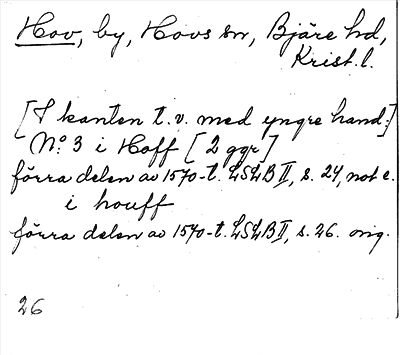 Hov, by, Hovs sn, Bjäre hd,
Krist. l.
[I kanten t. v. med yngre hand:]
No. 3 i Hoff [2 ggr]
förra delen av 1570-t. LSLB II, s. 24, not c.
i houff
förra delen av 1570-t. LSLB II, s. 26. orig.
26